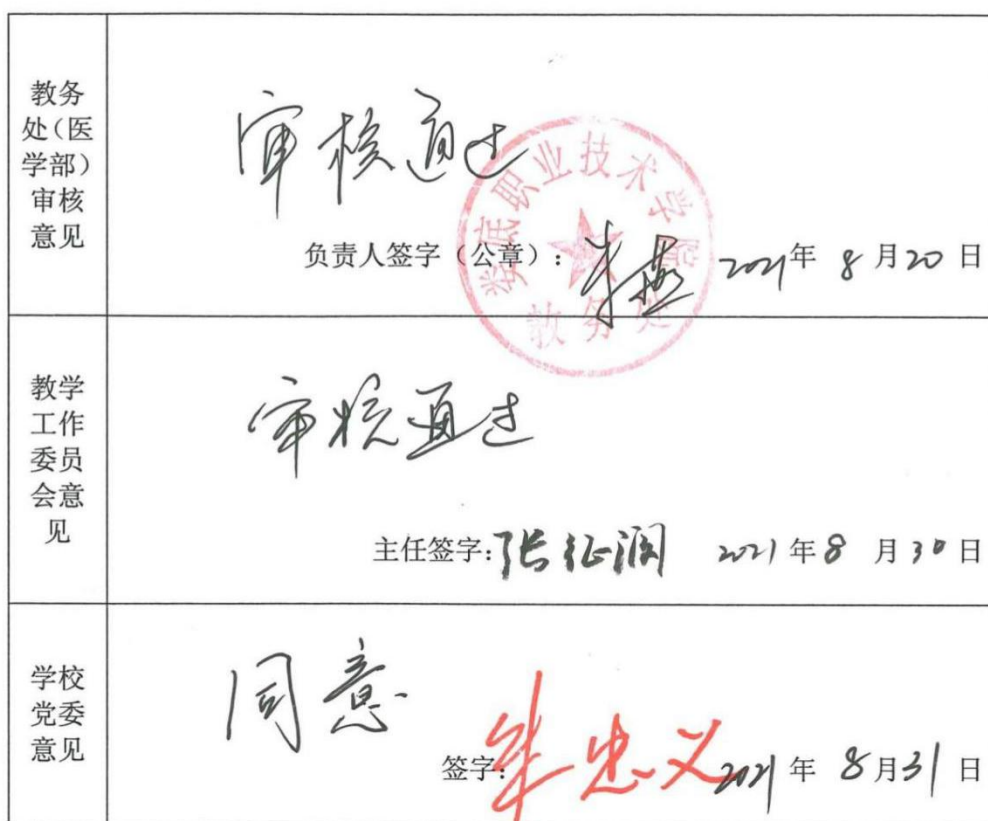 教务
处（医
学部）
审核
意见
审核通过
负责人签字（公章）：
2021年 8月20日
娄底职业技术学院
教务处
教学
工作
委员
会意
见
审核通过
主任签字:张征澜 2021年8月30日
学校
党委
意见
同意
签字: 2021年8月31日